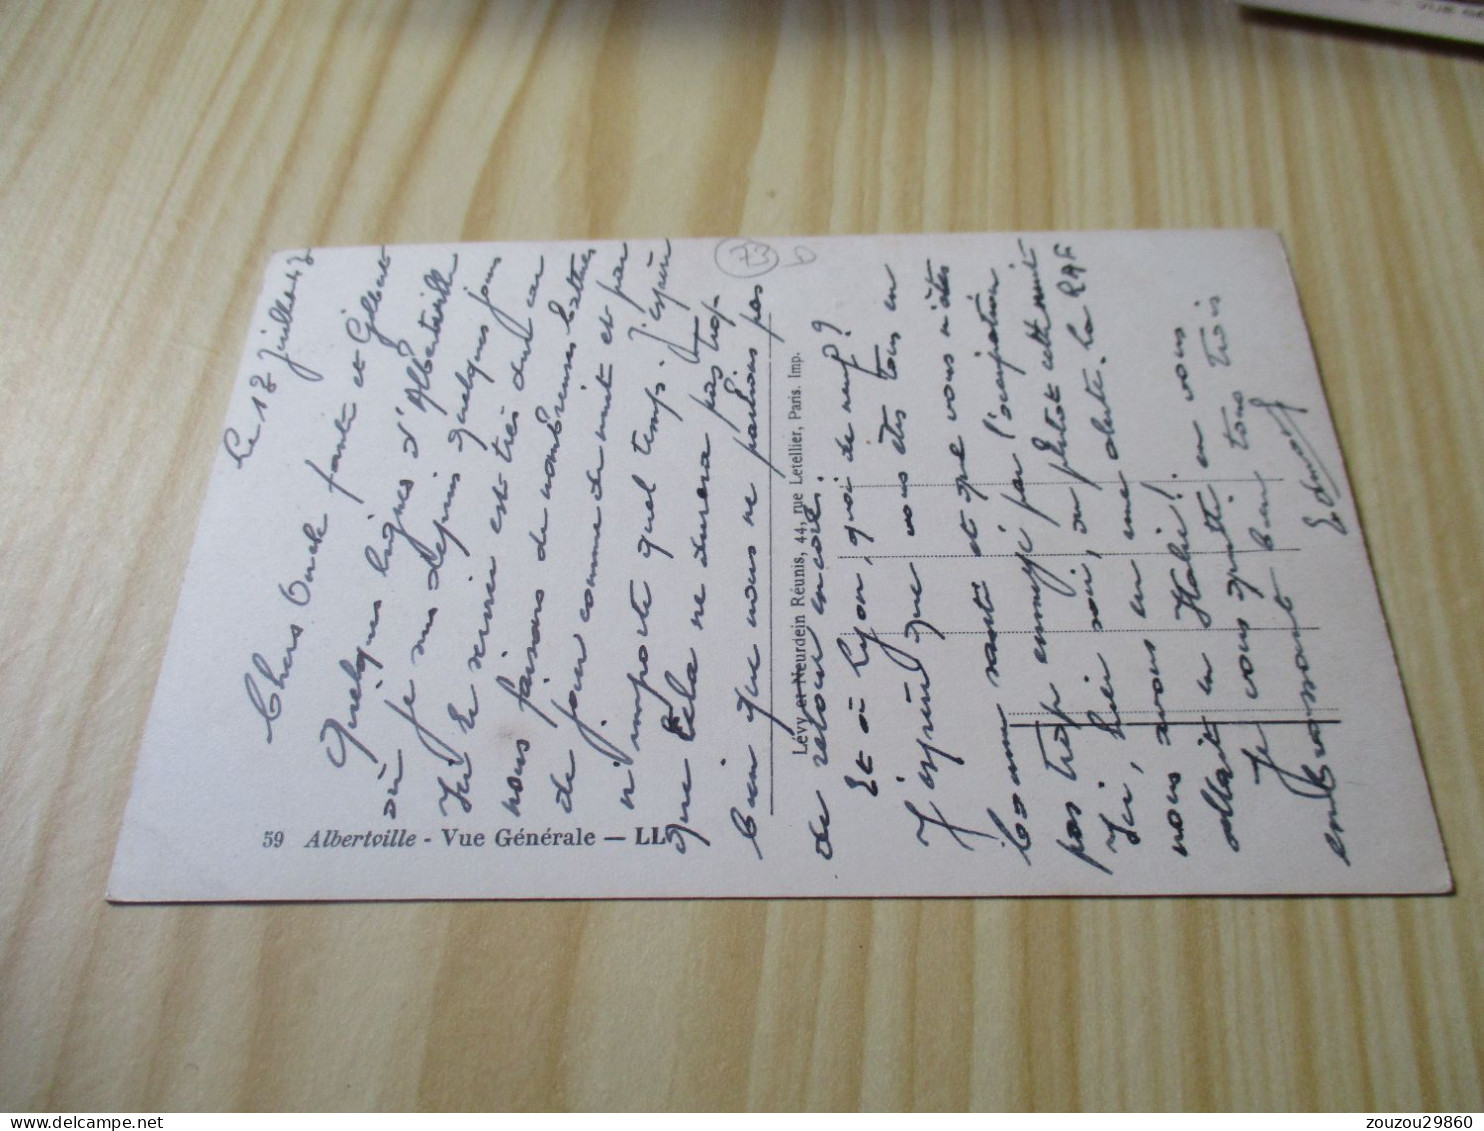 Le 13 juillet 43
Chers Oncle tante et Gilbert
Quelques lignes d'Albertville
où je suis depuis quelques jours
Ici le service est très dur car
nous faisons de nombreuses battres
de jour comme de nuit et par
n'importe quel temps. J'espère
que cela ne durera pas trop
bien que nous ne parlions pas
de retour encore.
Et à Lyon, quoi de neuf?
J'espère que vous êtes tous en
bonne santé et que vous n'êtes
pas trop ennuyé par l'occupation
Ici, hier soir, ou plutôt cette nuit
nous avons eu une alerte. La RAF
allait en Italie!
Je vous quitte en vous
embrassant bien tous trois
Edmond
73
59 Albertville - Vue Générale — LL
Lévy et Neurdein Réunis, 44, rue Letellier, Paris. Imp.
VUE GÉ
zouzou29860